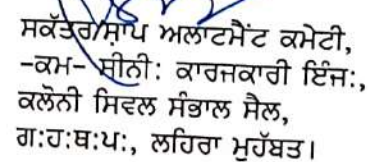 ਸਕੱਤਰ/ਸ਼ਾਪ ਅਲਾਟਮੈਂਟ ਕਮੇਟੀ,
-ਕਮ- ਸੀਨੀ: ਕਾਰਜਕਾਰੀ ਇੰਜ:,
ਕਲੋਨੀ ਸਿਵਲ ਸੰਭਾਲ ਸੈਲ,
ਗ:ਹ:ਥ:ਪ:, ਲਹਿਰਾ ਮੁਹੱਬਤ।